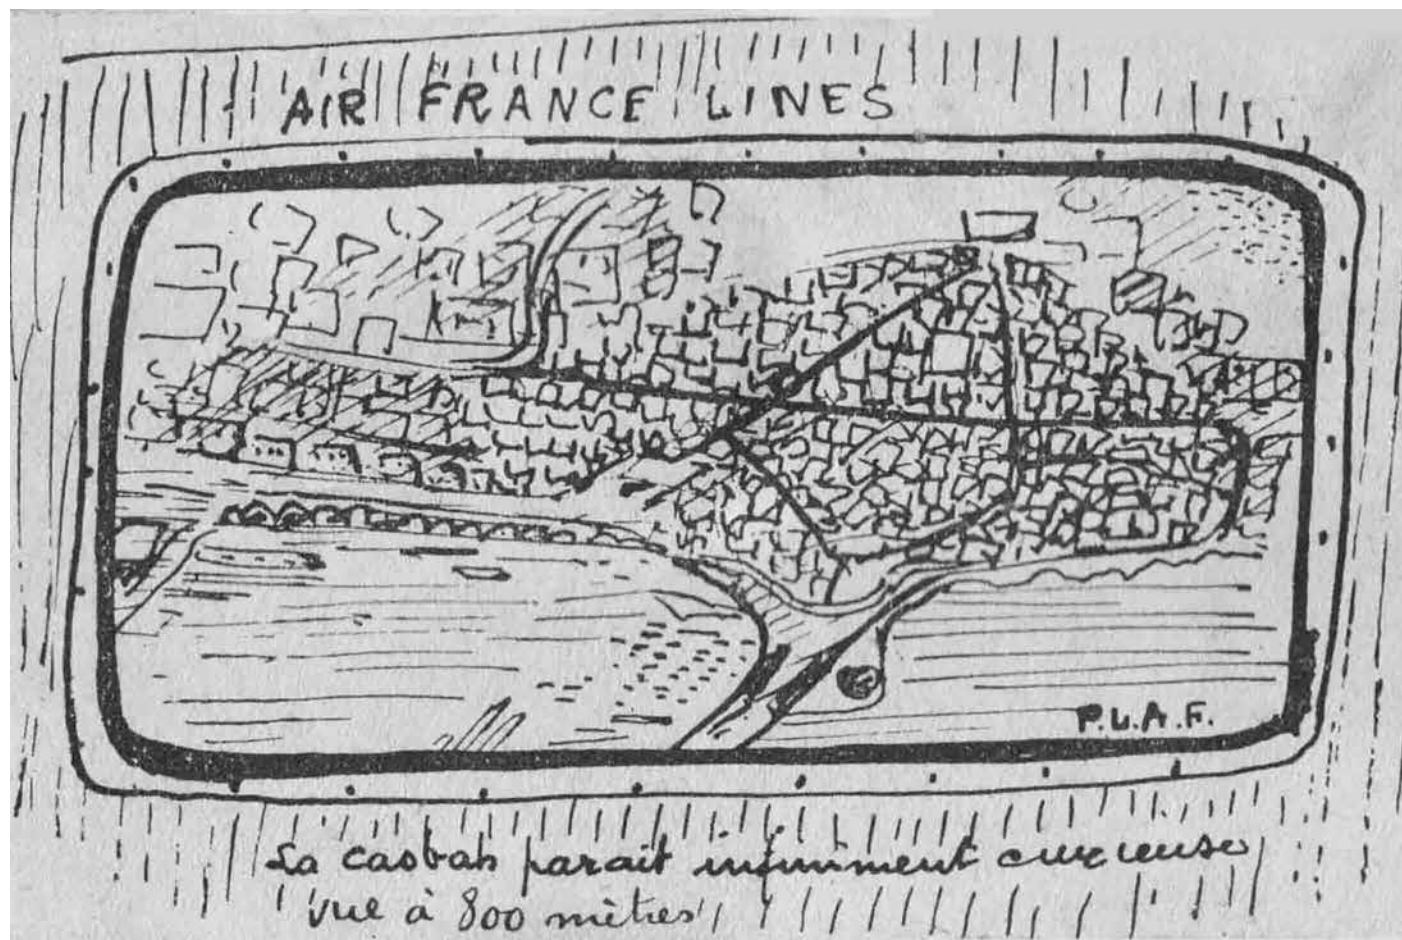 AIR FRANCE LINES
P.L.A.F.
La casbah parait infiniment curieuse
vue à 800 mètres